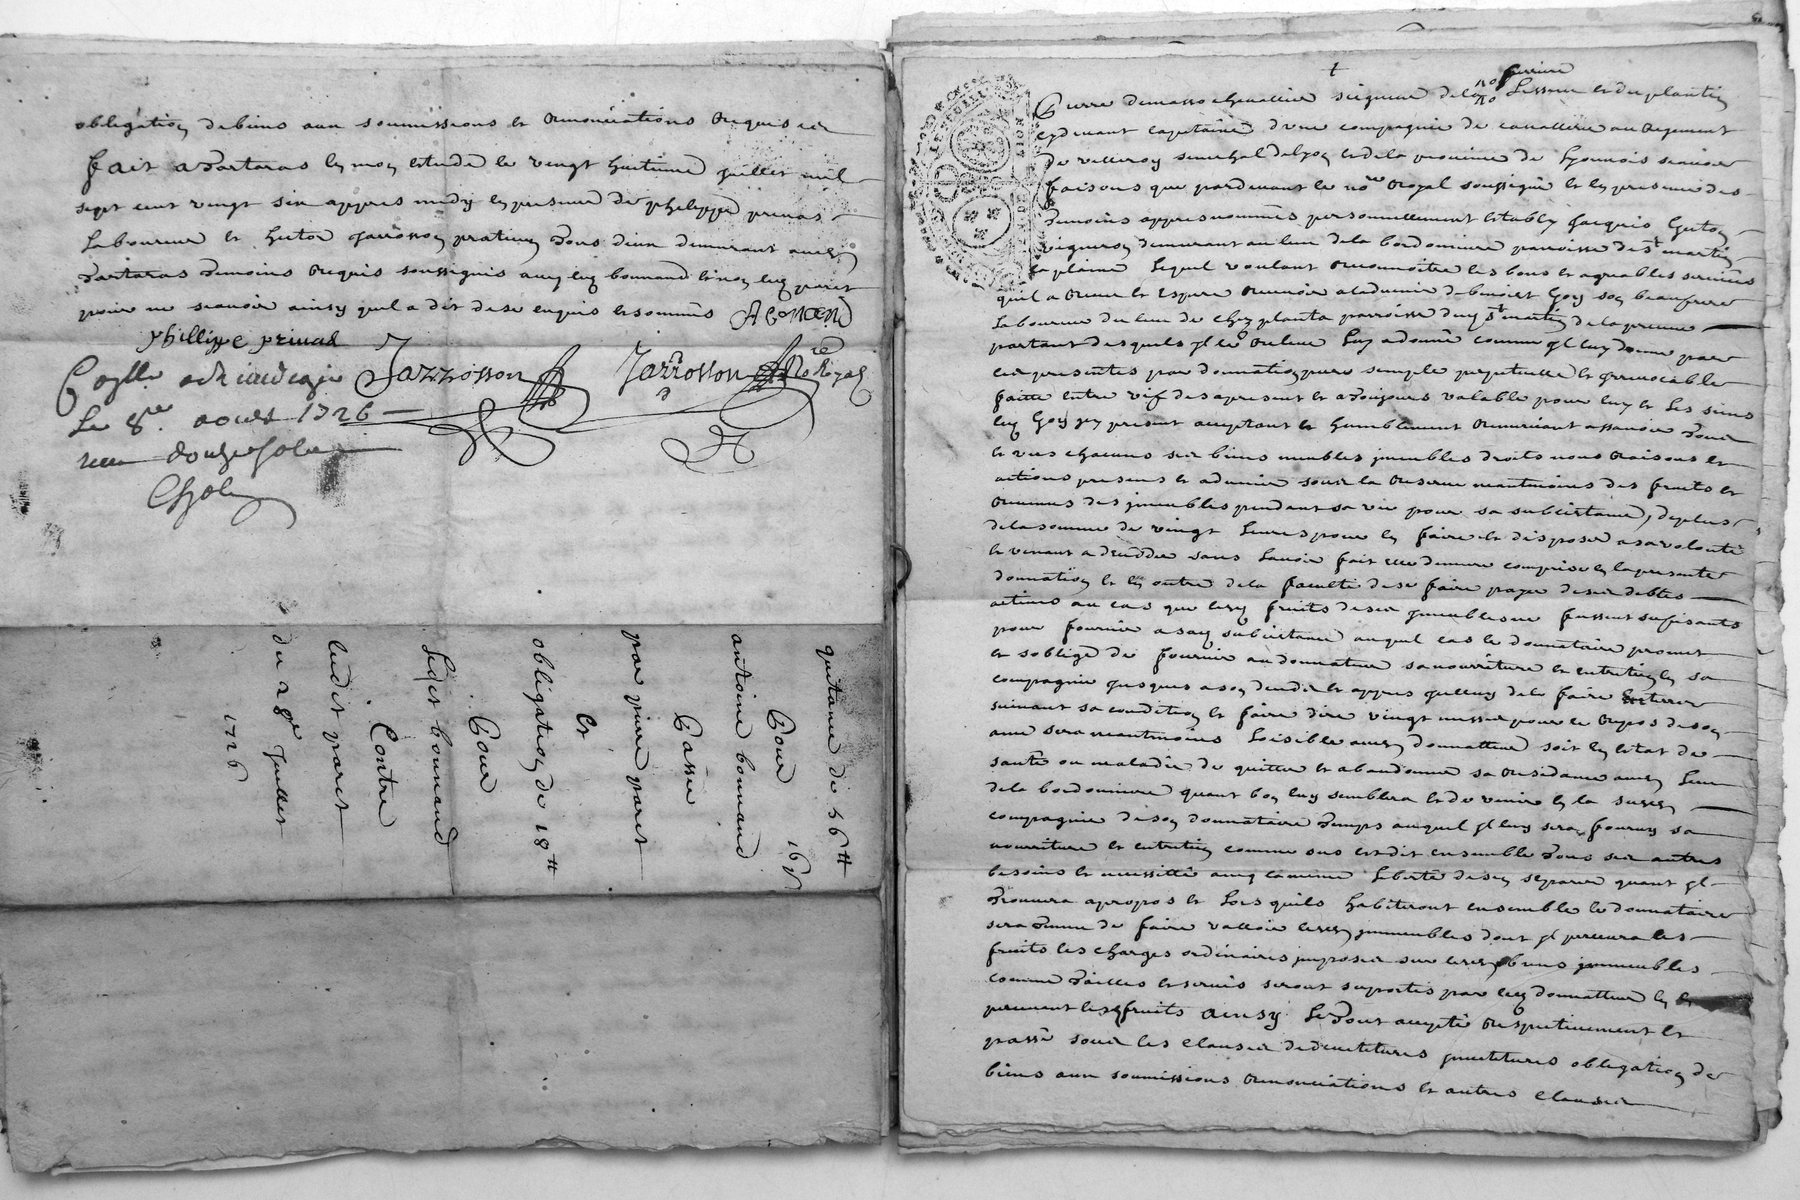 obligation de biens aux soumissions et renonciations requises
fait a Tartaras en mon etude le vingt huitieme juillet mil
sept cent vingt six appres midy en presence de phelippe privas
Laboureur et hector Jarrosson praticien Tous deux demeurant audit
Tartaras Temoins requis soussignés avec led bonnand et non led paret
pour ne scavoir ainsy quil a dit de ce enquis et sommés ABONAND
phillippe privas
Jarrosson Jarrosson No.re Royal
Coplle a
Le 8.e aout 1726
receu douze sols
quitance de 56 tt
Pour
antoine bonnand
Passée
par pierre paret
Et
obligation de 18 tt
Pour
Ledit bonnand
Contre
ledit paret
du 28e Juillet
1726
ferriere
Pierre demasso chevallier seigneur de la Lissone et du plantin
cydevant capitaine dune compagnie de cavallerie au regiment
de villeroy senechal de lyon et de la province de Lyonnois scavoir
faisons que pardevant le no.re Royal soussigné et en presence des
Temoins appres nommés personnellement estably Jacques Guton
vigneron demeurant au lieu de la bordonniere parroisse de st martin
la plaine Lequel voulant reconnoitre les bons et agreables services
quil a receu et espere recevoir a ladvenir de benoist Goy son beaufrere
Laboureur du lieu de chez planta parroisse dud st martin de la preuve
partant desquels il la releve Luy a donné comme il luy donne par
ces presentes par donnation pure simple perpetuelle et irrevocable
faitte entre vifs des apresent et a Toujours valable pour luy et les siens
led Goy icy present acceptant et humblement remerciant assavoir Tous
et uns chacuns ses biens meubles immeubles droits noms raisons et
actions presens et advenir sous la reserve neantmoins des fruits et
revenus des immeubles pendant sa vie pour sa subcistance, de plus
de la somme de vingt Livres pour en faire et disposer a sa volonté
et venant a decedder sans Lavoir fait elle demeure comprise en la presente
donnation et en outre de la faculté de se faire payer de ses debtes
actives au cas que lesd fruits de ses immeubles ne fussent sufisants
pour fournir a sad subcistance auquel cas le donnataire promet
et soblige de fournir au donnateur sa nourriture et entretien en sa
compagnie jusques a son deceds et appres jcelluy de le faire enterrer
suivant sa condition et faire dire vingt messes pour le repos de son
ame sera neantmoins Loisible aud donnatteur soit en etat de
santé ou maladie de quitter et abandonner sa residance aud Lieu
de la bordonniere quant bon luy semblera et de venir en la susd
compagnie de son donnataire Temps auquel il luy sera fourny sa
nourriture et entretien comme sus est dit ensemble Tous ses autres
besoins et necessitté avec la meme Liberté de sen separer quant il
Trouvera apropos et Lors quils habiteront ensemble le donnataire
sera Tenu de faire valloir lesd immeubles dont il percevra les
fruits les charges ordinaires imposées sur lesd biens immeubles
comme Tailles et servis seront suportés par led donnatteur en
percevant lesd fruits ainsy Le Tout accepté respectivement et
passé sous les clauses de directitures obligation de
biens aux soumissions renonciations et autres clauses